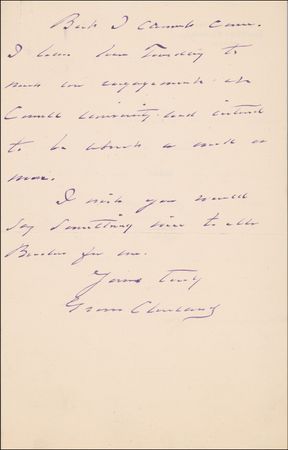 But I cannot come.
I leave here Tuesday to
meet an engagement at
Cornell University and intend
to be absent a week or
more.
I wish you would
say something nice to Mr
for me.
Yours truly
Grover Cleveland